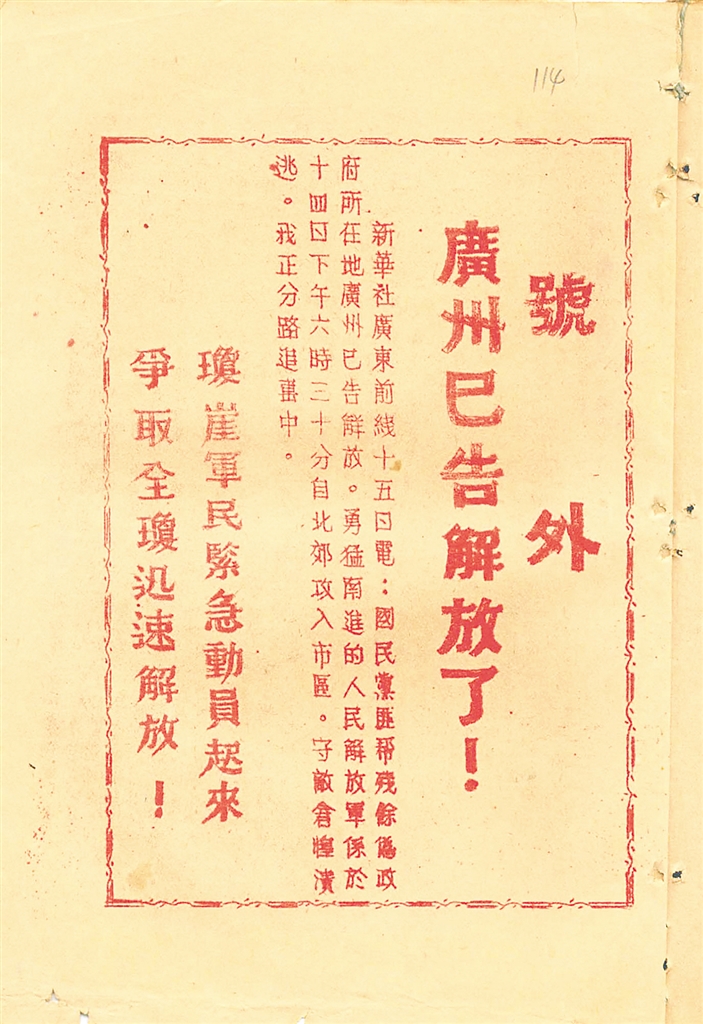 114
號外
廣州已告解放了！
新華社廣東前綫十五日電：國民黨匪帮殘餘僞政
府所在地廣州已告解放。勇猛南進的人民解放軍係於
十四日下午六時三十分自北郊攻入市區。守敵倉惶潰
逃。我正分路追擊中。
瓊崖軍民緊急動員起來
爭取全瓊迅速解放！